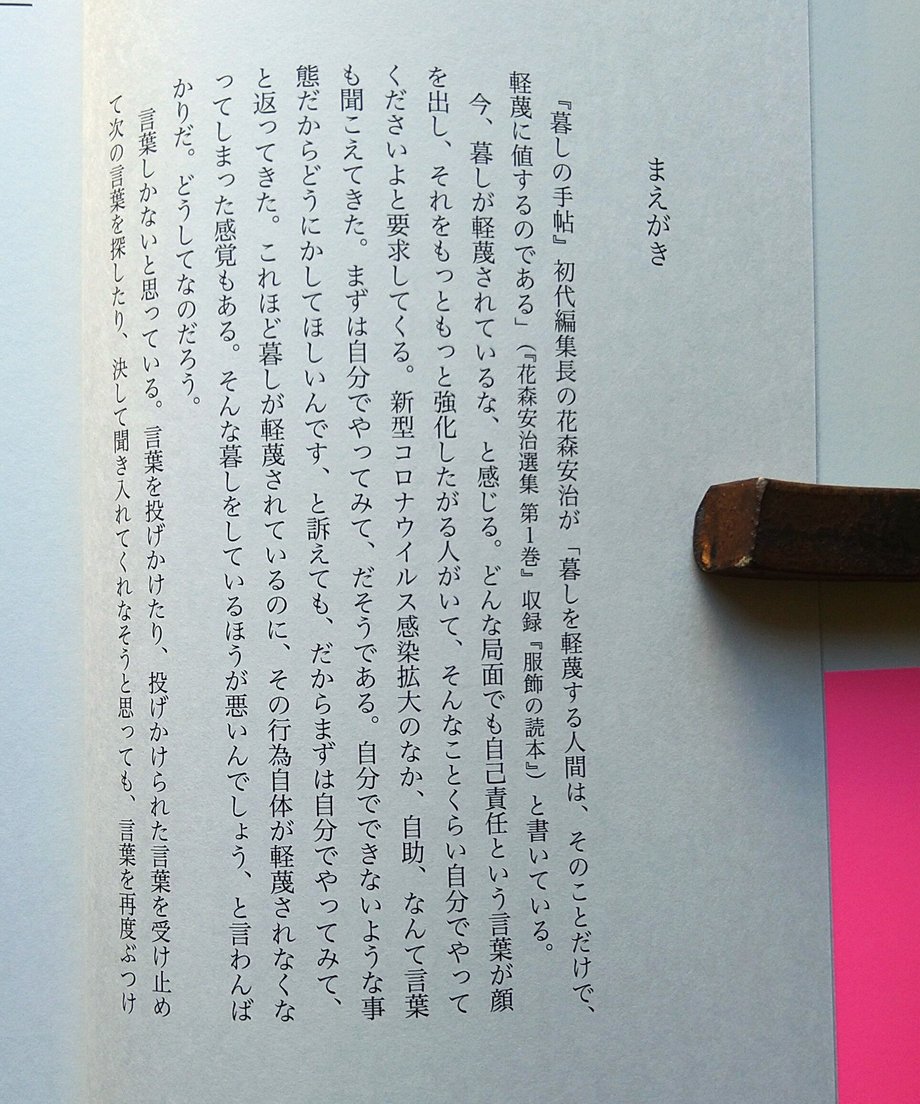 まえがき
『暮しの手帖』初代編集長の花森安治が「暮しを軽蔑する人間は、そのことだけで、
軽蔑に値するのである」(『花森安治選集 第1巻』収録『服飾の読本』)と書いている。
今、暮しが軽蔑されているな、と感じる。どんな局面でも自己責任という言葉が顔
を出し、それをもっともっと強化したがる人がいて、そんなことくらい自分でやって
くださいよと要求してくる。新型コロナウイルス感染拡大のなか、自助、なんて言葉
も聞こえてきた。まずは自分でやってみて、だそうである。自分でできないような事
態だからどうにかしてほしいんです、と訴えても、だからまずは自分でやってみて、
と返ってきた。これほど暮しが軽蔑されているのに、その行為自体が軽蔑されなくな
ってしまった感覚もある。そんな暮しをしているほうが悪いんでしょう、と言わんば
かりだ。どうしてなのだろう。
言葉しかないと思っている。言葉を投げかけたり、投げかけられた言葉を受け止め
て次の言葉を探したり、決して聞き入れてくれなそうと思っても、言葉を再度ぶつけ